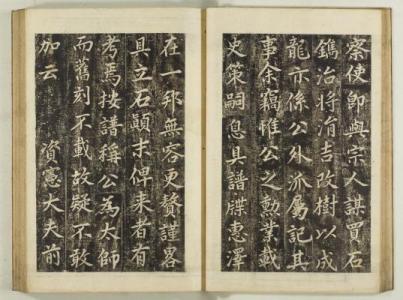 察使即與宗人謀買石
鐫治將涓吉改樹以成
龍亦係公外派屬記其
事余竊惟公之勲業載
史策嗣息具譜牒惠澤
在一邦無容更贅謹畧
具立石顛末俾来者有
考焉按譜稱公為大師
而舊刻不載故疑不敢
加云　資憲大夫前